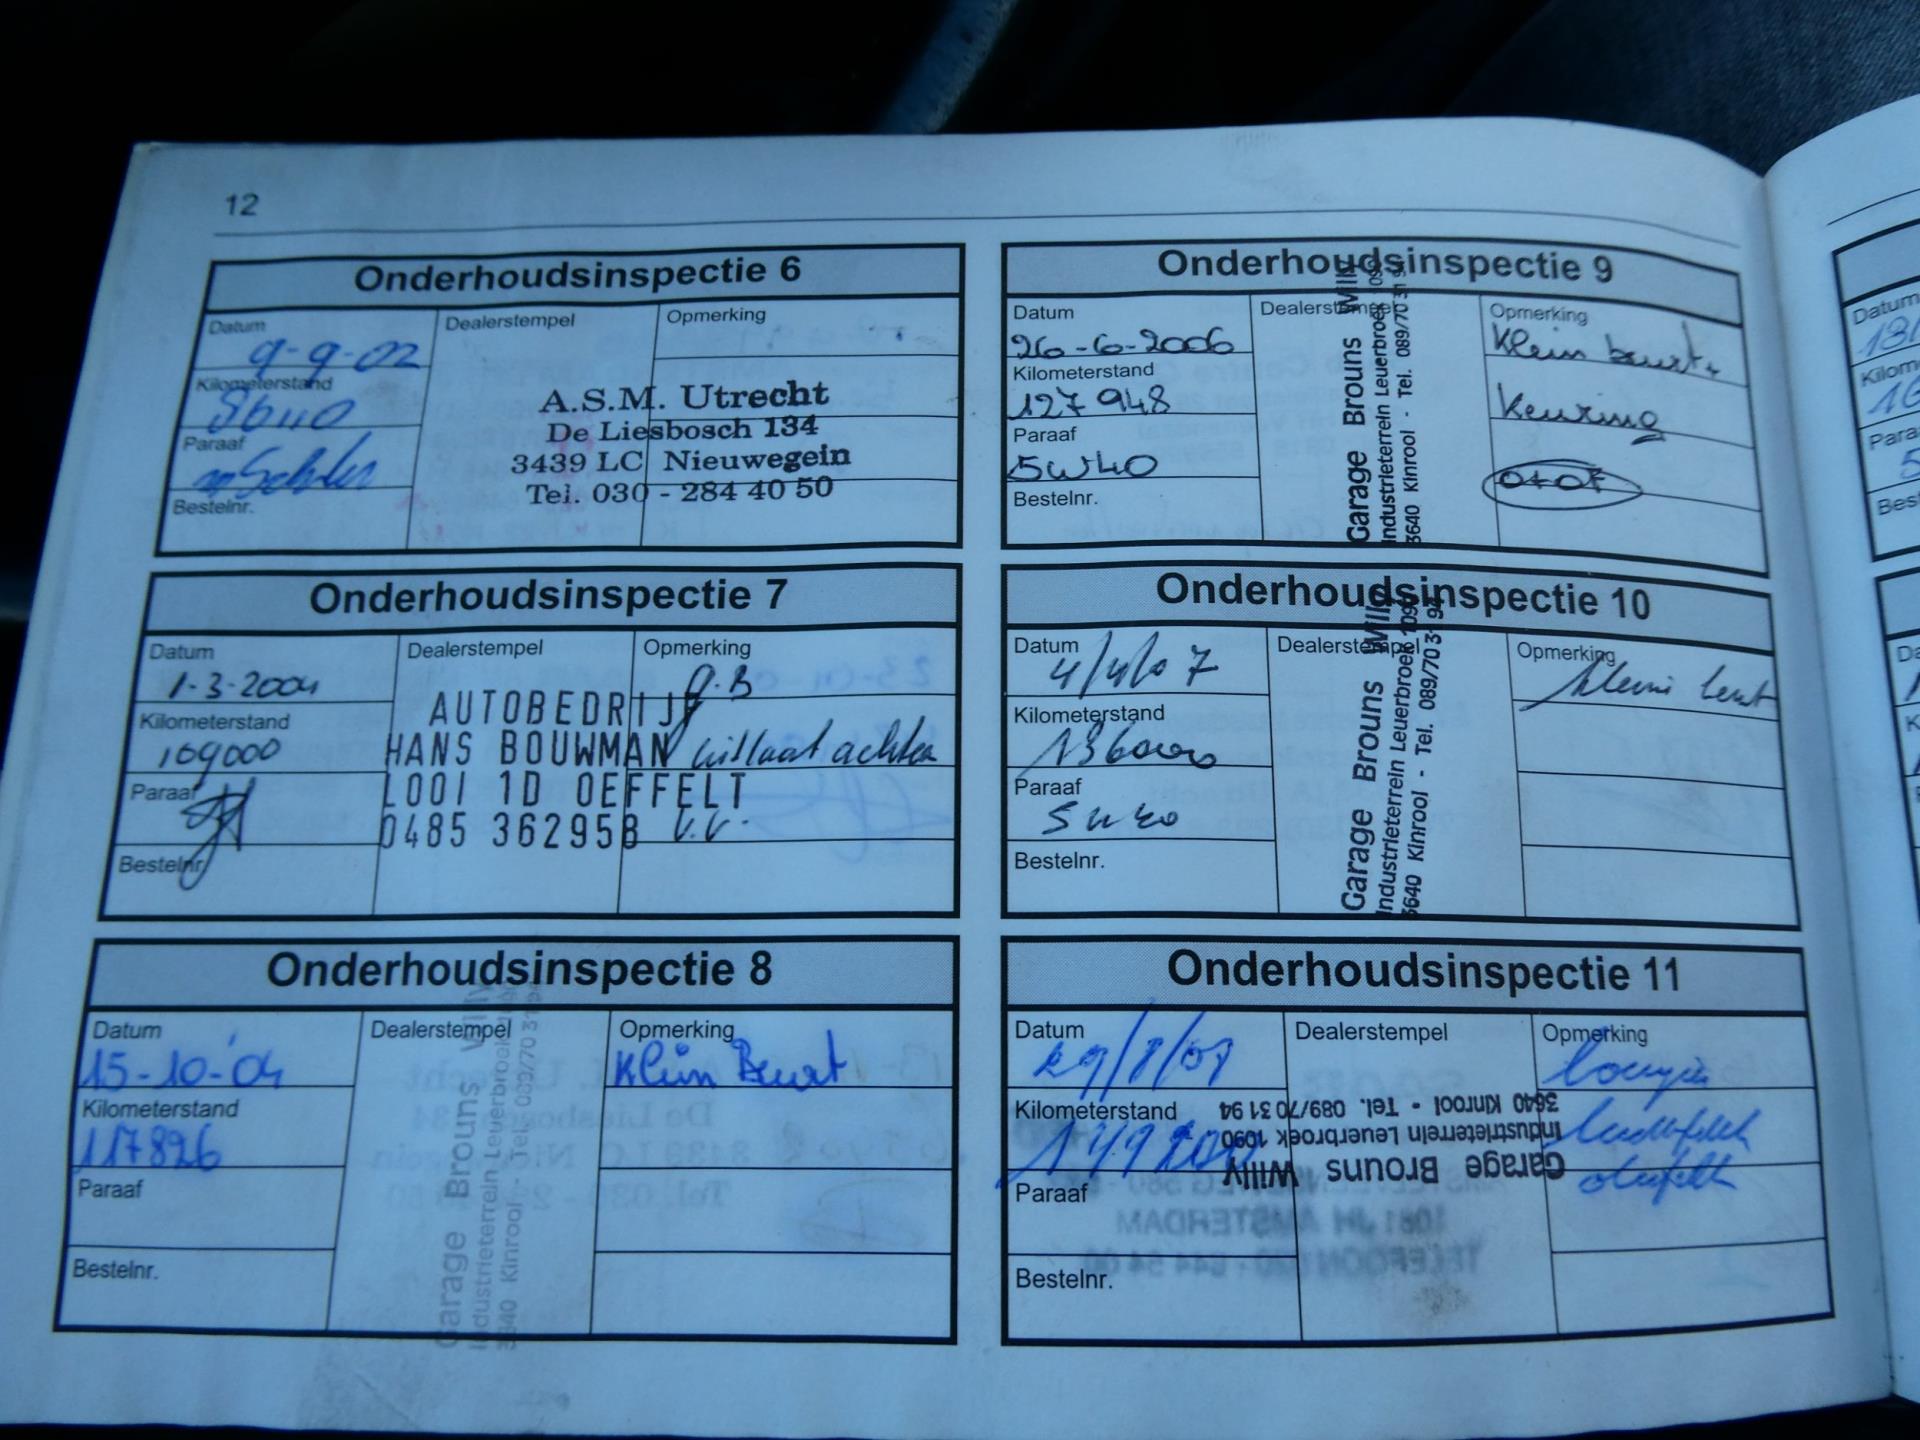 12
Onderhoudsinspectie 6
Datum
9-9-02
Kilometerstand
Paraaf
Bestelnr.
Dealerstempel
A.S.M. Utrecht
De Liesbosch 134
3439 LC Nieuwegein
Tel. 030 - 284 40 50
Opmerking
Onderhoudsinspectie 7
Datum
1-3-2004
Kilometerstand
109000
Paraaf
Bestelnr.
Dealerstempel
AUTOBEDRIJF
HANS BOUWMAN
LOOI 1D OEFFELT
0485 362958
Opmerking
G.B
uitlaat achter
V.V.
Onderhoudsinspectie 8
Datum
15-10-'04
Kilometerstand
117826
Paraaf
Bestelnr.
Dealerstempel
Garage Brouns Willy
Industrieterrein Leuerbroek 1090
3640 Kinrooi - Tel. 089/70 31 94
Opmerking
Klein Beurt
Onderhoudsinspectie 9
Datum
26-6-2006
Kilometerstand
127948
Paraaf
5W40
Bestelnr.
Dealerstempel
Garage Brouns Willy
Industrieterrein Leuerbroek 1090
3640 Kinrooi - Tel. 089/70 31 94
Opmerking
Klein beurt +
Keuring
Onderhoudsinspectie 10
Datum
4/4/07
Kilometerstand
136000
Paraaf
5w40
Bestelnr.
Dealerstempel
Garage Brouns Willy
Industrieterrein Leuerbroek 1090
3640 Kinrooi - Tel. 089/70 31 94
Opmerking
kleine beurt
Onderhoudsinspectie 11
Datum
Kilometerstand
Paraaf
Bestelnr.
Dealerstempel
Garage Brouns Willy
Industrieterrein Leuerbroek 1090
3640 Kinrooi - Tel. 089/70 31 94
Opmerking
Datum